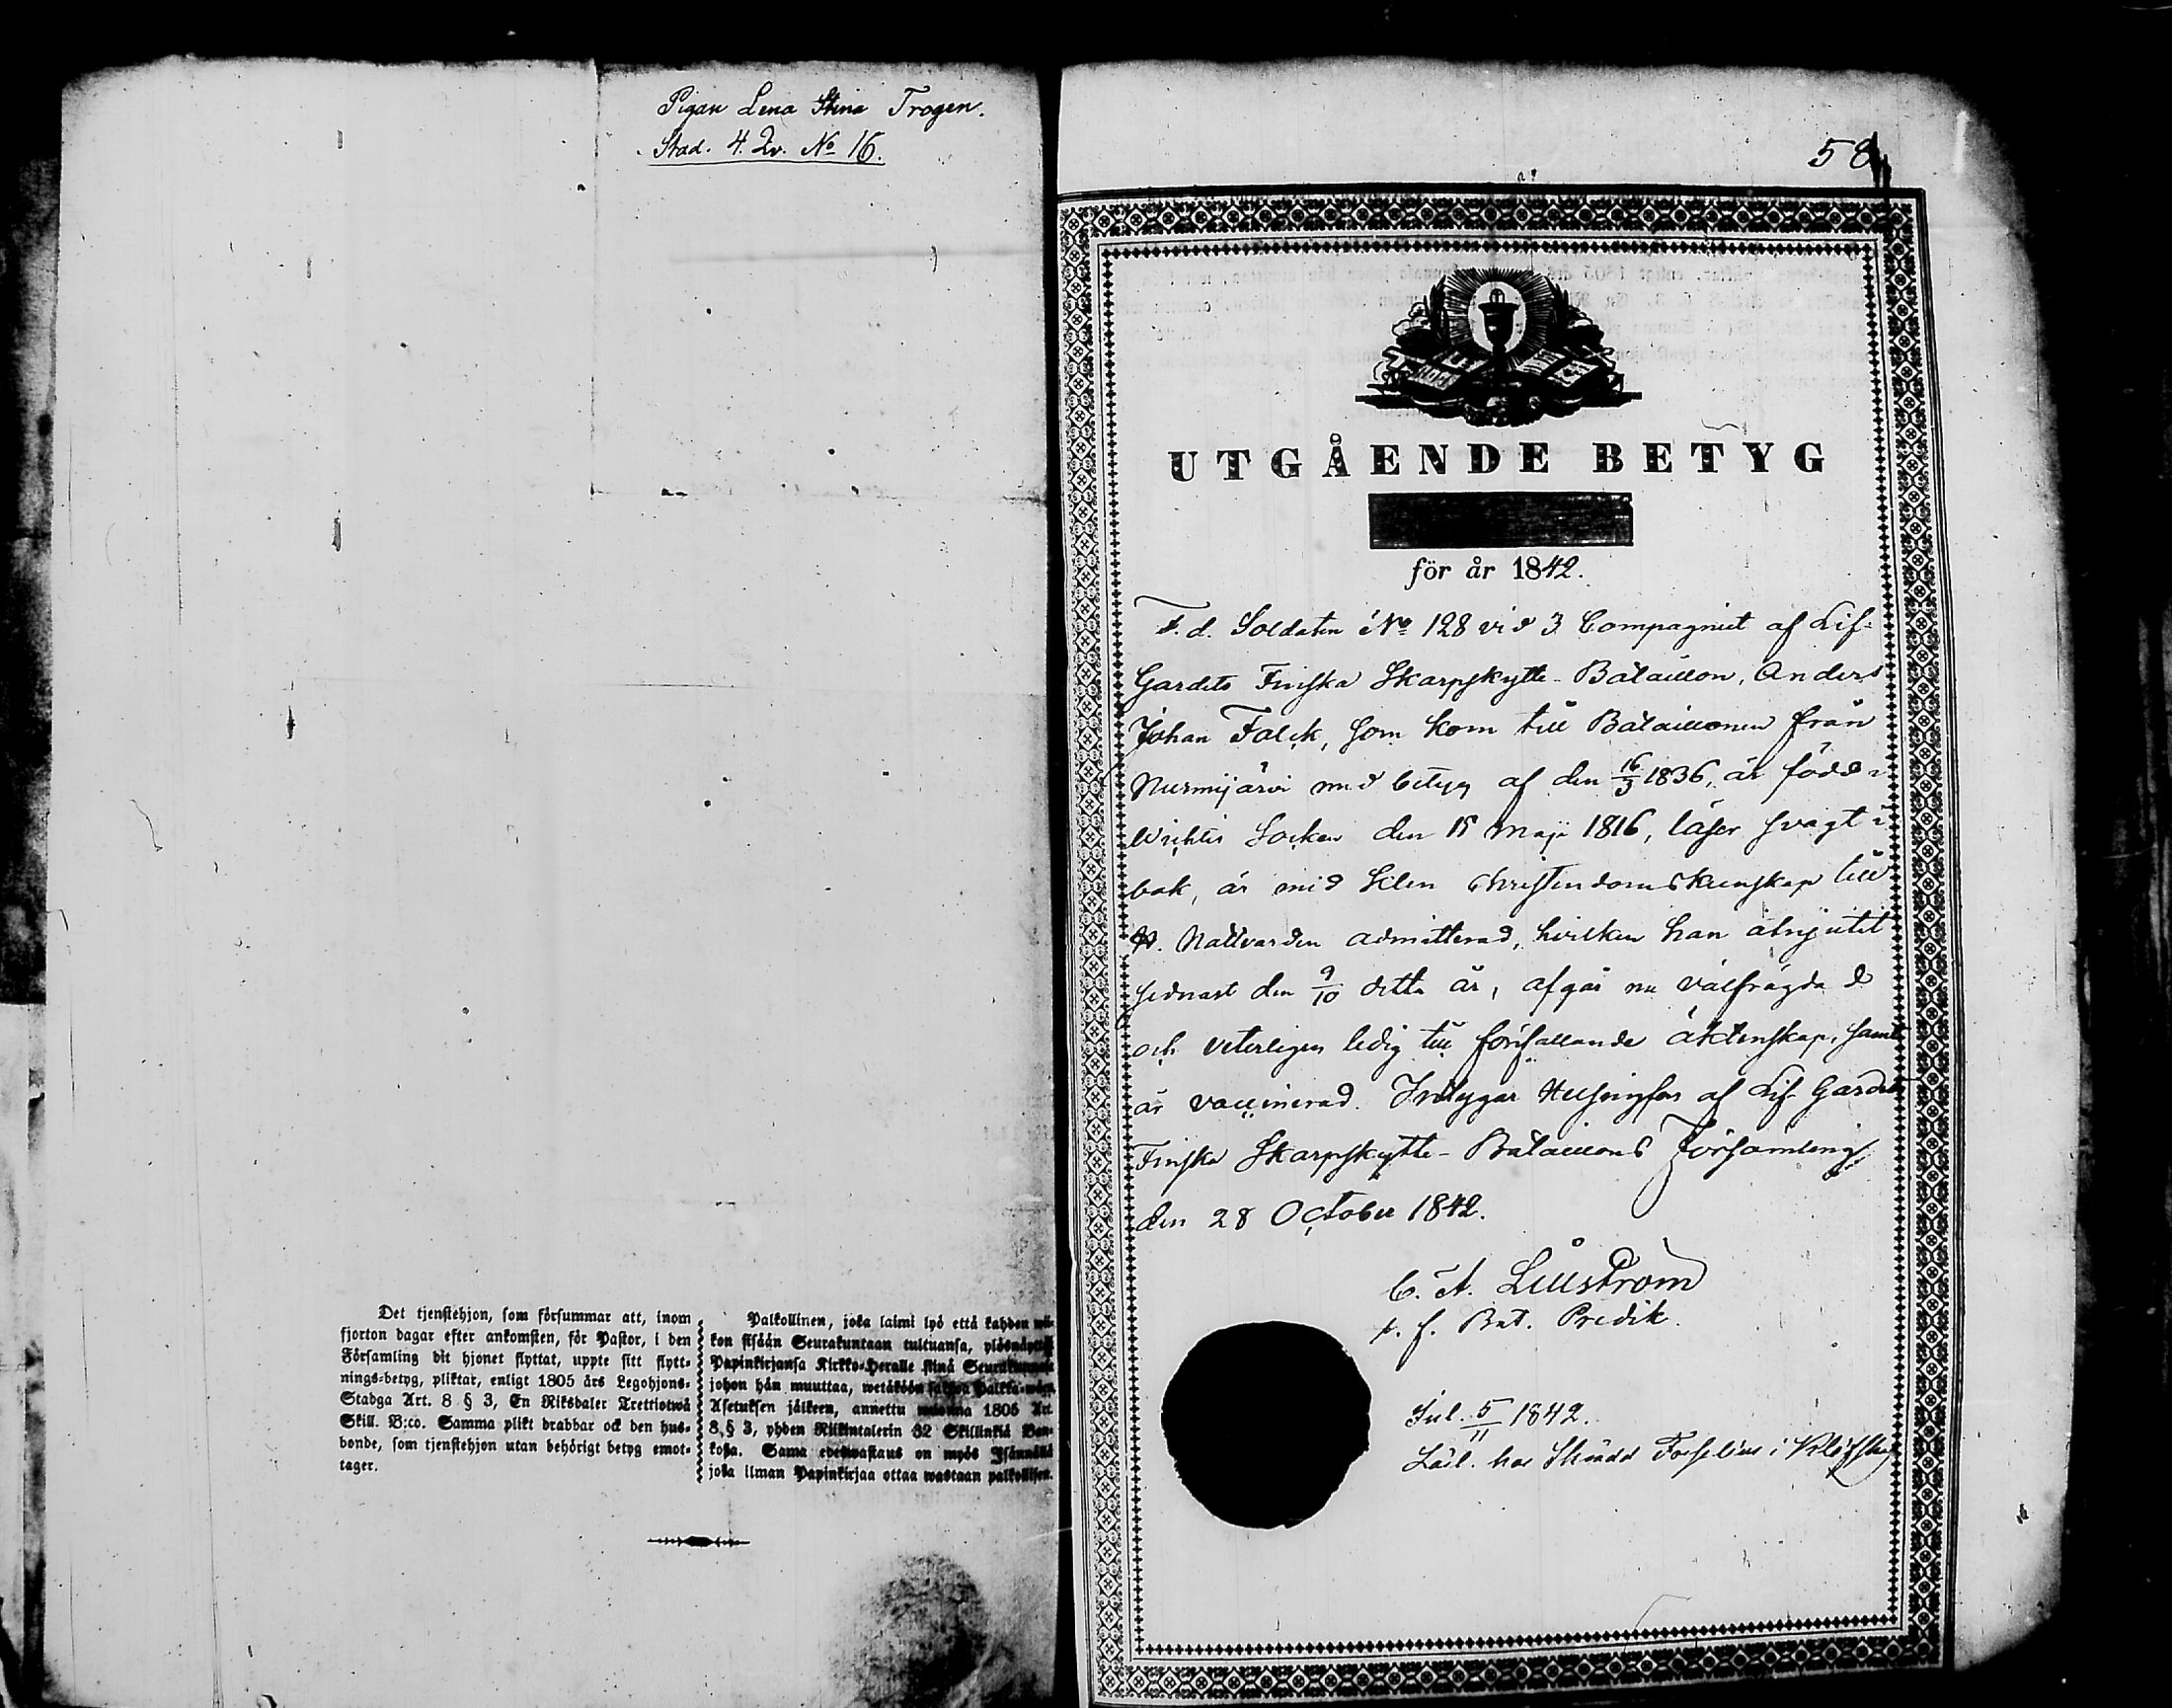 Pigan Lena Stina Trogen.
Stad. 4. Qv. No 16.
Det tjenstehjon, som försummar att, inom
fjorton dagar efter ankomsten, för Pastor, i den
Församling dit hjonet flyttat, uppte sitt flytt-
nings-betyg, pliktar, enligt 1805 års Legohjons-
Stadga Art. 8 § 3, En Riksdaler Trettiotwå
Skill. B:co. Samma plikt drabbar ock den hus-
bonde, som tjenstehjon utan behörigt betyg emot-
tager.
Palkollinen, joka laimi lyö että kahden wii-
kon sisään Seurakuntaan tultuansa, ylösnäyttää
Papinkirjansa Kirkko-Herralle siinä Seurakunnassa
johon hän muuttaa, wetäköön sakkoa Palkka-wäen
Asetuksen jälkeen, annettu wuonna 1805 Art.
8, § 3, yhden Riikintalerin 32 Skillinkiä Ban-
kosa. Sama edeswastaus on myös Isännällä
joka ilman Papinkirjaa ottaa wastaan palkollisen.
58
UTGÅENDE BETYG
för år 1842.
F. d. Soldaten No 128 vid 3 Compagniet af Lif-
Gardets Finska Skarpskytte-Bataillon, Anders
Johan Falck, som kom till Bataillonen från
Nurmijärvi med betyg af den 16/3 1836, är född i
Wichtis Socken den 15 Maji 1816, läser svagt i
bok, är med klen christendomskunskap till
H. Nattvarden admitterad, hvilken han åtnjutit
sednast den 9/10 detta år, afgår nu välfrägdad
och veterligen ledig till förefallande äktenskap, samt
är vaccinerad. Intygar Helsingfors af Lif-Gardets
Finska Skarpskytte-Bataillons Församling
den 28 October 1842.
C. A. Lillström
t. f. Bat. Predik.
Inl. 5/11 1842.
hos Skrädd